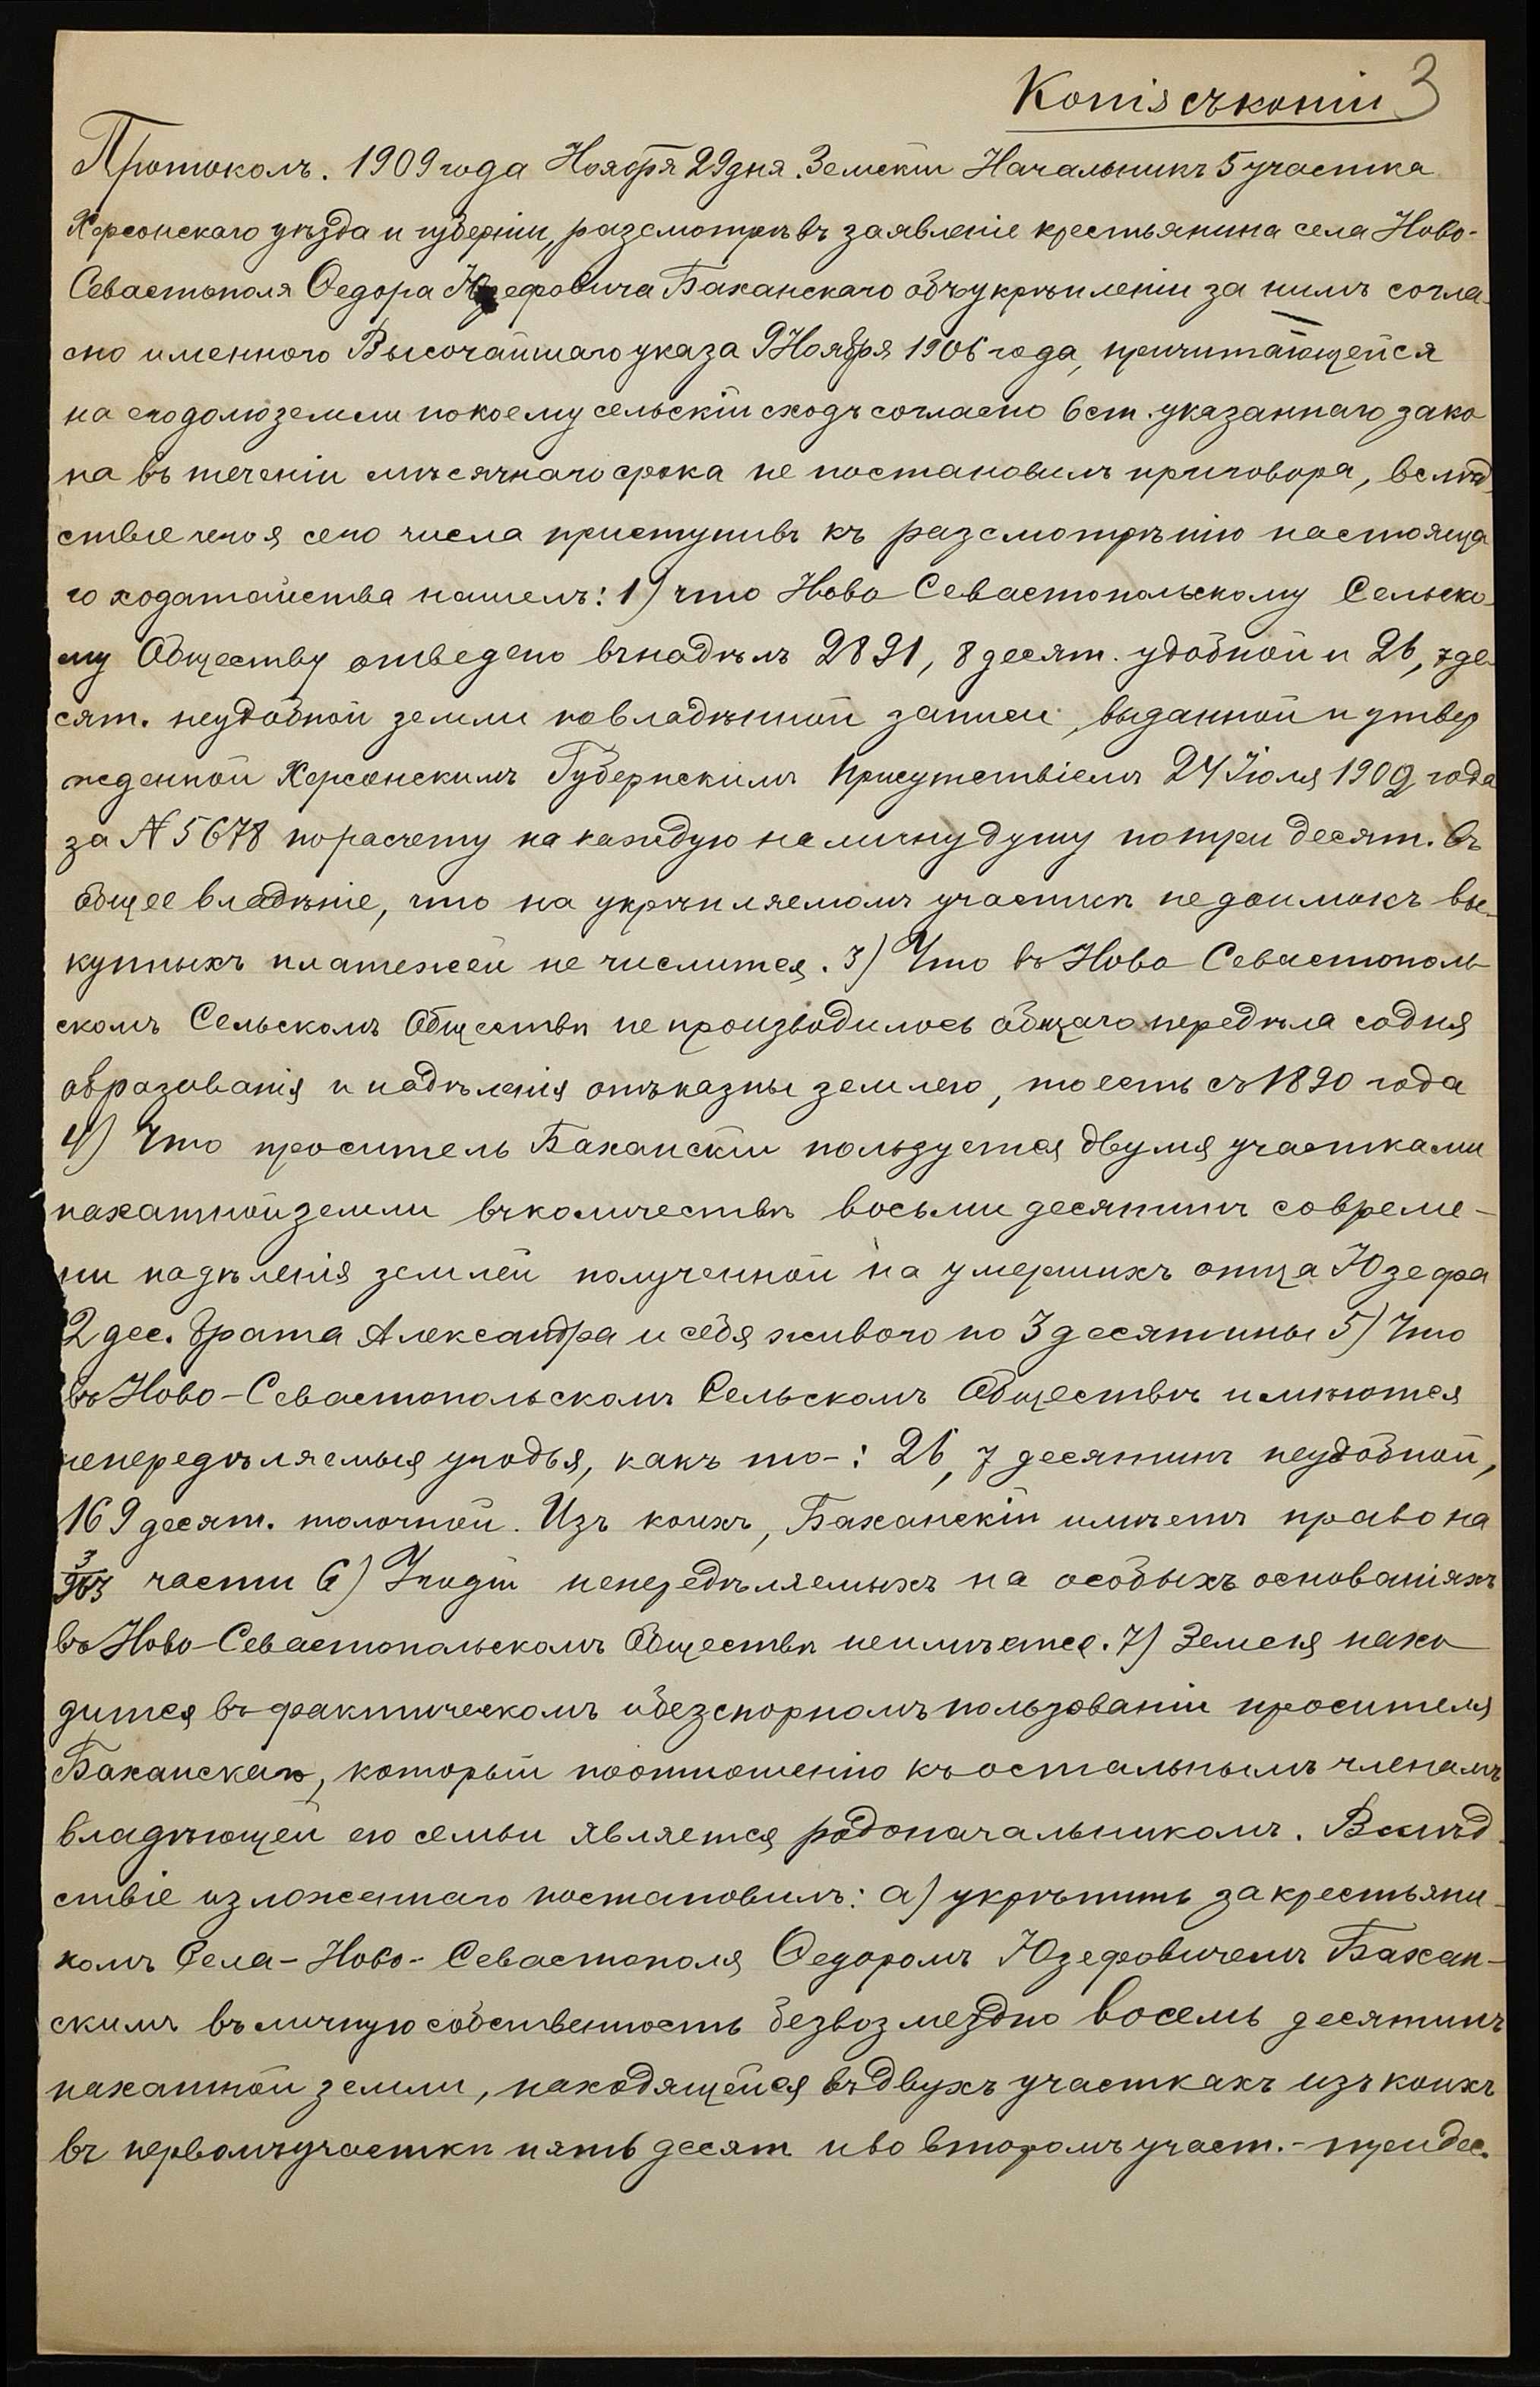 Копія съ копіи 3
Протоколъ. 1909 года Ноября 29 дня. Земскій Начальникъ 5 участка
Херсонскаго уѣзда и губерніи, разсмотрѣвъ заявленіе крестьянина села Ново-
Севастополя Ѳедора Юзефовича Баханскаго объ укрѣпленіи за нимъ согла-
сно именного Высочайшаго указа 9 Ноября 1906 года, причитающейся
на его долю земли по коему сельскій сходъ согласно 6 ст. указаннаго зако
на въ теченіи мѣсячнаго срока не постановилъ приговора, вслѣд
ствіе чего я сего числа приступивъ къ разсмотрѣнію настояща
го ходатайства нашелъ: 1) что Ново Севастопольскому Сельско-
му Обществу отведено въ надѣлъ 2891, 8 десят. удобной и 26, 7 де-
сят. неудобной земли по владѣнной записи, выданной и утвер
жденной Херсонскимъ Губернскимъ Присутствіемъ 24 Іюля 1909 года
за № 5678 по расчету на каждую наличну душу по три десят. въ
общее владѣніе, что на укрѣпляемомъ участкѣ недоимокъ вы-
купныхъ платежей не числится. 3) Что въ Ново Севастополь
скомъ Сельскомъ Обществѣ не производилось общаго передѣла со дня
образованія и надѣленія отъ казны землею, то есть съ 1890 года
4) Что проситель Баханскій пользуется двумя участками
пахатной земли въ количествѣ восьми десятинъ со време-
ни надѣленія землей полученной на умершихъ отца Юзефа
2 дес. брата Александра и себя живого по 3 десятины 5) Что
въ Ново-Севастопольскомъ Сельскомъ Обществѣ имѣются
непередѣляемыя угодья, какъ то-: 26, 7 десятинъ неудобной,
169 десят. толочной. Изъ коихъ, Баханскій имѣетъ право на
3/963 части 6) Угодій непередѣляемыхъ на особыхъ основаніяхъ
въ Ново-Севастопольскомъ Обществѣ неимѣется. 7) Земля нахо
дится въ фактическомъ и безспорномъ пользованіи просителя
Баханскаго, который по отношенію къ остальнымъ членамъ
владѣющей ею семьи является родоначальникомъ. Вслѣд-
ствіе изложеннаго постановилъ: а) укрѣпить за крестьяни-
номъ Села-Ново-Севастополя Ѳедоромъ Юзефовичемъ Бахан-
скимъ въ личную собственность безвозмездно восемь десятинъ
пахатной земли, находящейся въ двухъ участкахъ изъ коихъ
въ первомъ участкѣ пять десят и во второмъ участ.- три дес.